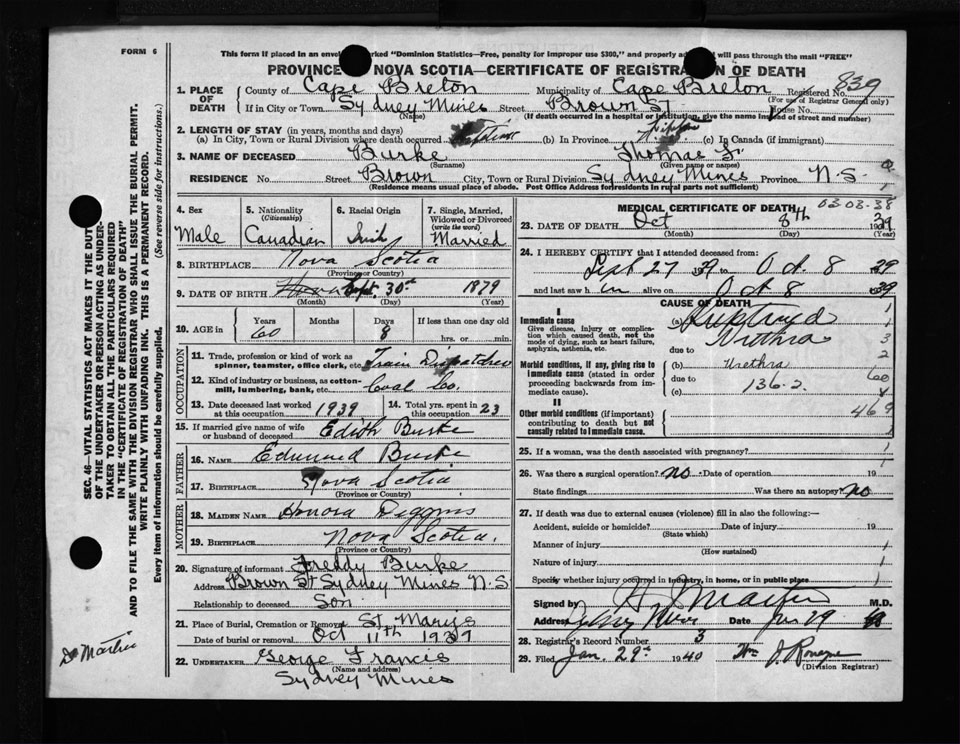 FORM 6
This form if placed in an envelope marked "Dominion Statistics—Free, penalty for improper use $300," and properly addressed will pass through the mail "FREE"
PROVINCE OF NOVA SCOTIA—CERTIFICATE OF REGISTRATION OF DEATH
839
1. PLACE OF DEATH County of Cape Breton Municipality of Cape Breton Registered No.
(For use of Registrar General only)
If in City or Town Sydney Mines Street Brown St House No.
(Name) (If death occurred in a hospital or institution, give the name instead of street and number)
2. LENGTH OF STAY (in years, months and days)
(a) In City, Town or Rural Division where death occurred (b) In Province (c) In Canada (if immigrant)
3. NAME OF DECEASED Burke Thomas F.
(Surname) (Given name or names)
RESIDENCE No. Street Brown City, Town or Rural Division Sydney Mines Province N.S.
(Residence means usual place of abode. Post Office Address for residents in rural parts not sufficient)
4. Sex Male
5. Nationality (Citizenship) Canadian
6. Racial Origin Irish
7. Single, Married, Widowed or Divorced (write the word) Married
8. BIRTHPLACE Nova Scotia
(Province or Country)
9. DATE OF BIRTH Sept. 30th 1879
(Month) (Day) (Year)
10. AGE in Years 60 Months Days 8 If less than one day old
hrs. or min.
OCCUPATION
11. Trade, profession or kind of work as spinner, teamster, office clerk, etc. Train Dispatcher
12. Kind of industry or business, as cotton-mill, lumbering, bank, etc. Coal Co.
13. Date deceased last worked at this occupation 1939
14. Total yrs. spent in this occupation 23
15. If married give name of wife or husband of deceased Edith Burke
FATHER
16. NAME Edmund Burke
17. BIRTHPLACE Nova Scotia
(Province or Country)
MOTHER
18. MAIDEN NAME Honora Diggins
19. BIRTHPLACE Nova Scotia.
(Province or Country)
20. Signature of informant Freddy Burke
Address Brown St Sydney Mines N.S
Relationship to deceased Son
21. Place of Burial, Cremation or Removal St. Marys
Date of burial or removal Oct 11th 1939
22. UNDERTAKER George Francis
(Name and address)
Sydney Mines
MEDICAL CERTIFICATE OF DEATH
03-03-38
23. DATE OF DEATH Oct 8th 1939
(Month) (Day) (Year)
24. I HEREBY CERTIFY that I attended deceased from:
Sept 27 39 to Oct. 8 1939
and last saw h im alive on Oct 8 1939
CAUSE OF DEATH
I
Immediate cause
Give disease, injury or complication which caused death, not the mode of dying, such as heart failure, asphyxia, asthenia, etc.
(a) Ruptured Urethra
due to
Morbid conditions, if any, giving rise to immediate cause (stated in order proceeding backwards from immediate cause).
(b) Urethra
due to 136-2.
(c)
II
Other morbid conditions (if important) contributing to death but not causally related to immediate cause.
469
25. If a woman, was the death associated with pregnancy?
26. Was there a surgical operation? no Date of operation 19
State findings Was there an autopsy? no
27. If death was due to external causes (violence) fill in also the following:—
Accident, suicide or homicide? Date of injury 19
(State which)
Manner of injury
(How sustained)
Nature of injury
Specify whether injury occurred in industry, in home, or in public place
Signed by M.D.
Address Date Jan 29
28. Registrar's Record Number 3
29. Filed Jan. 29th 1940 Wm J.
(Division Registrar)
SEC. 46—VITAL STATISTICS ACT MAKES IT THE DUTY
OF THE UNDERTAKER OR PERSON ACTING AS UNDERTAKER TO OBTAIN ALL THE PARTICULARS REQUIRED
IN THE "CERTIFICATE OF REGISTRATION OF DEATH"
AND TO FILE THE SAME WITH THE DIVISION REGISTRAR WHO SHALL ISSUE THE BURIAL PERMIT.
WRITE PLAINLY WITH UNFADING INK. THIS IS A PERMANENT RECORD.
Every item of information should be carefully supplied. (See reverse side for instructions.)
Dr Martin